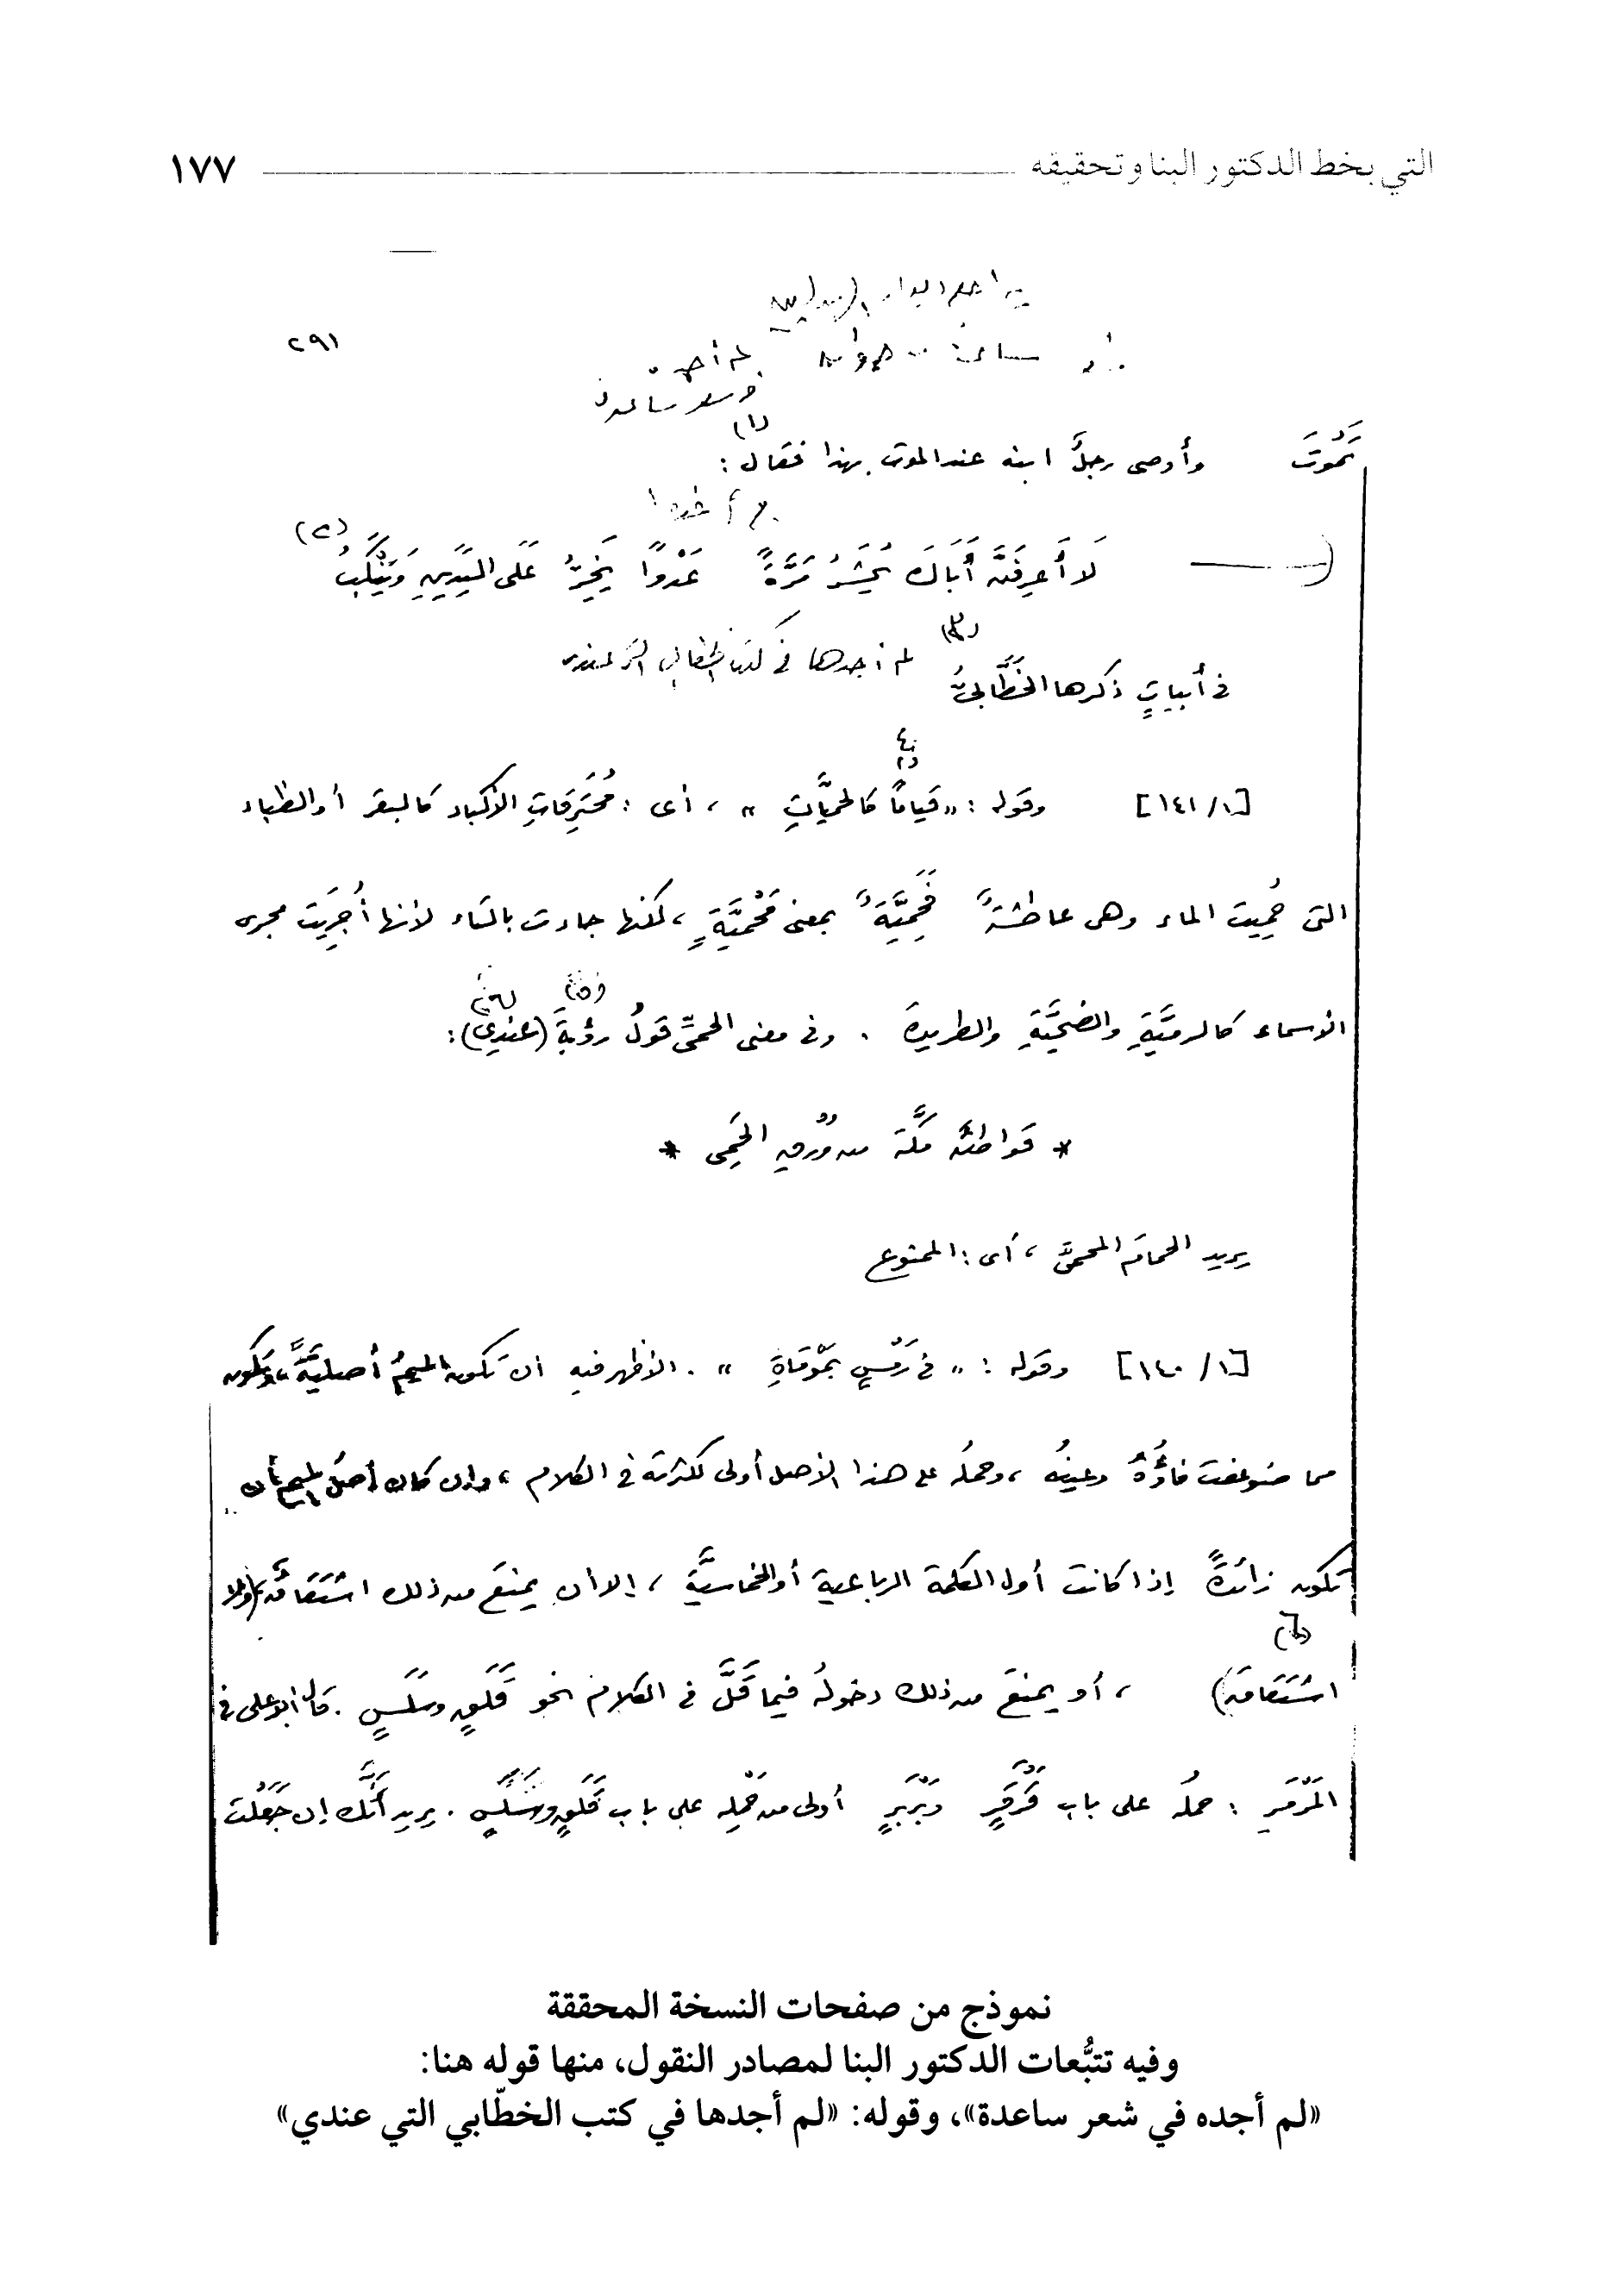 التي بخط الدكتور البنا وتحقيقه ١٧٧
٢٩١
لم أجده
في شعر ساعدة
(١)
يَمُوتَ وأوصى رجلٌ ابنه عند الموت بهذا فقال :
(٢)
لَا أَعرِفَنَّ أَبَاكَ يُحْشَرُ مَرَّةً عَدْوًا يَخِرُّ عَلَى اليَدَينِ وَيُنْكَبُ
لم أجدها في كتب الخطابي التي عندي
(٣)
في أبياتٍ ذكرها الخَطَّابىُّ
[١٤١/١] وقوله : « قيامًا كالحميَّاتِ » ، أى : مُحْتَرِقاتِ الأكباد كالبقر أو الظباء
التى حُمِيت الماء وهى عاطشةٌ فَحَمِيَّةٌ بمعنى مَحْمِيَّةٍ ، لكنها جاءت بالتاء لأنها أُجرِيَت مجرى
(٥)
الأسماء كالرميَّةِ والضحيَّةِ والطريدة . وفى معنى الحمىِّ قولُ رؤبةَ (عندي) :
* قواطنًا مكَّة من وُرْقِ الحَمِى *
يريد الحمامَ المحمىَّ ، أى : الممنوع
[١٤٠/١] وقوله : « فى رَمْسٍ بمَوْمَاةٍ » . الأظهر فيه أن تكون الميمُ أصليةً ، وتكون
مما ضوعفت فاؤُهُ وعينُه ، وحملُه على هذا الأصل أولى لكثرته فى الكلام ، وإن كان أصلُ الميم أن
تكون زائدةً إذا كانت أول الكلمة الرباعية أو الخماسيَّة ، إلا أن يمنعَ من ذلك اشتقاقٌ (ولا
(٦)
اشتقاق) ، أو يمنعَ من ذلك دخولُه فيما قَلَّ فى الكلام نحو قَلَقٍ وسَلَسٍ . قال أبو على فى
المَرْمَرِ : حملُه على باب قَرْقَرٍ وبَرْبَرٍ أولى من حَمْلِه على باب قَلَقٍ وسَلَسٍ . يريد أنَّك إن جَعَلْتَ
نموذج من صفحات النسخة المحققة
وفيه تتبُّعات الدكتور البنا لمصادر النقول، منها قوله هنا:
«لم أجده في شعر ساعدة»، وقوله: «لم أجدها في كتب الخطّابي التي عندي»